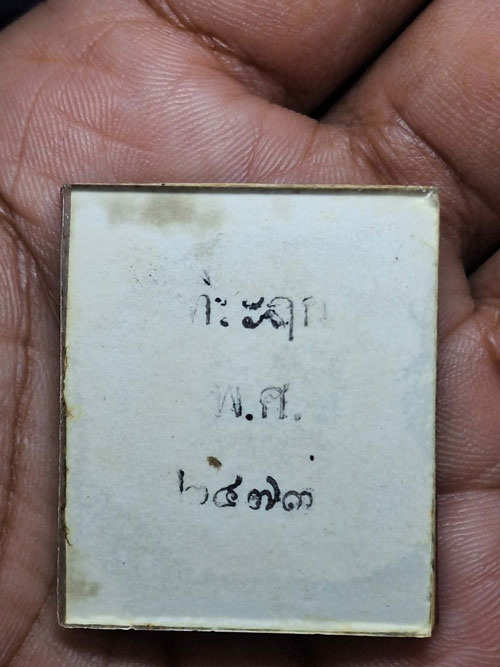 ที่ระฤก
พ.ศ.
๒๔๗๓